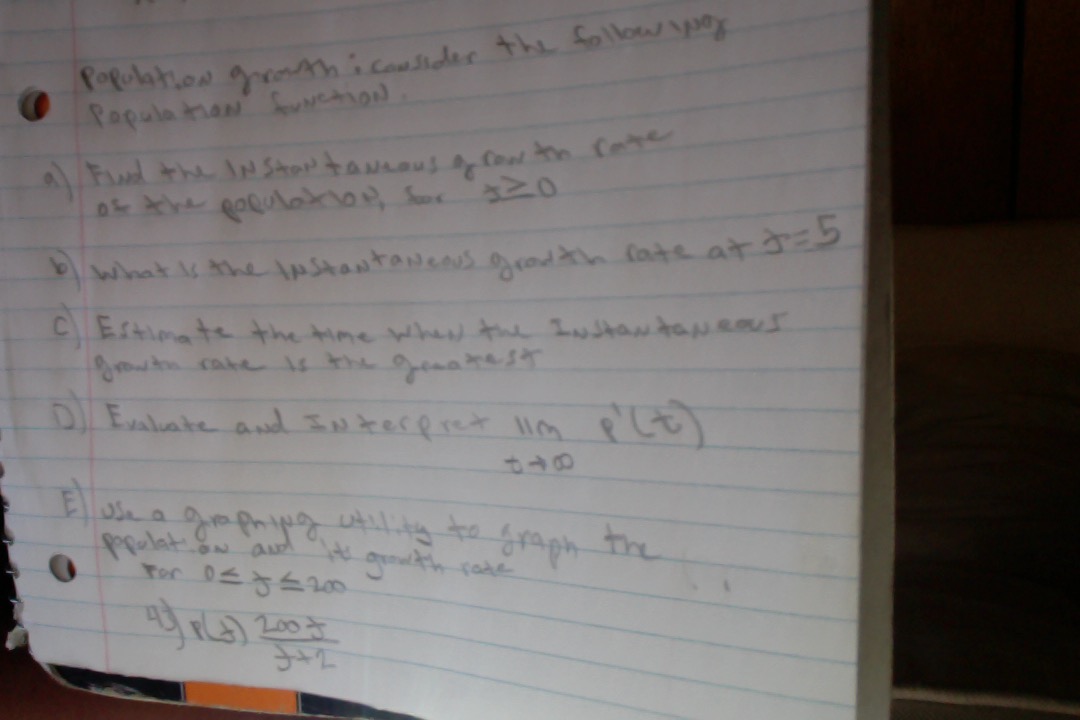 Population growth: consider the following
Population function.
a) Find the Instantaneous growth rate
of the population, for t≥0
b) What is the Instantaneous growth rate at t=5
C) Estimate the time when the Instantaneous
growth rate is the greatest
D) Evaluate and Interpret lim p'(t)
t→∞
E) Use a graphing utility to graph the
population and it growth rate
For 0≤t≤200
p(t) 200t
t+2